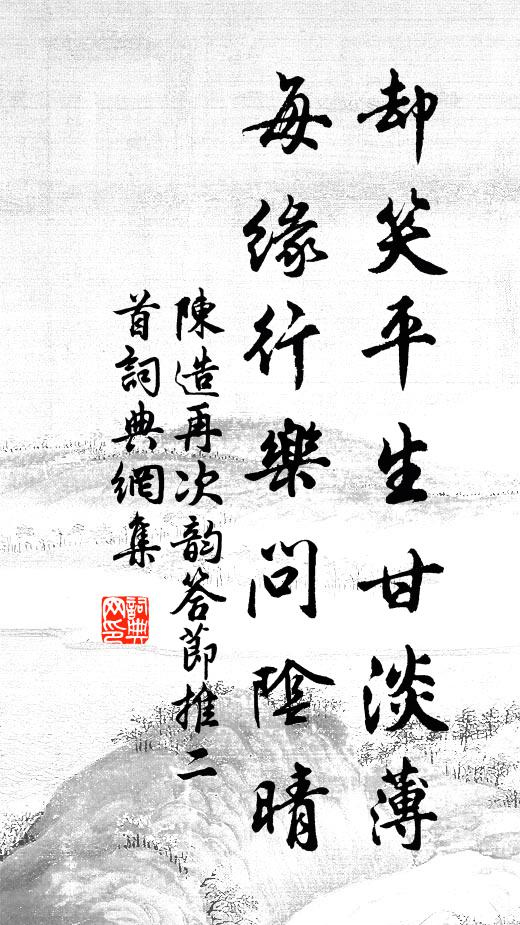 却笑平生甘淡薄
每緣行樂問陰晴
陳造再次韵答節推二
首詞典網集
詞典
网印